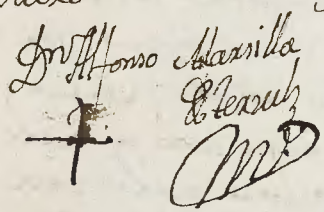 Dn Alfonso Marsilla
de teruel